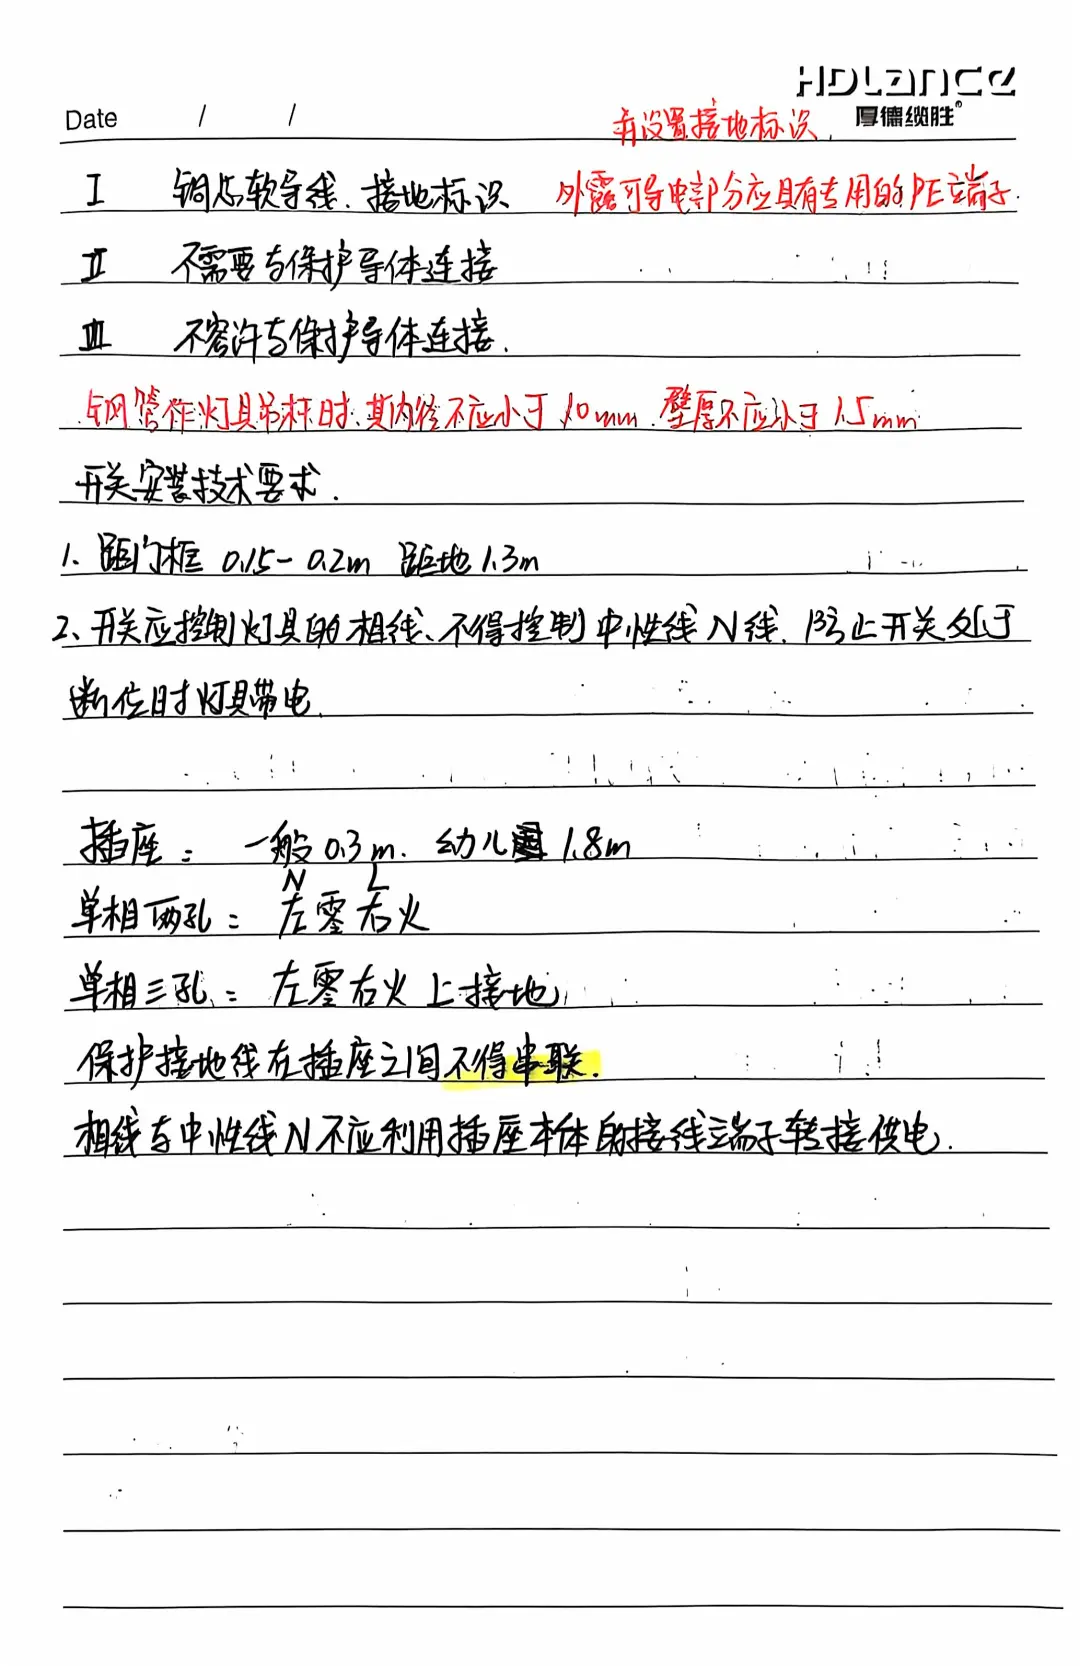 HDLANCE
Date / / 有设置接地标识. 厚德缆胜®
Ⅰ 铜芯软导线、接地标识 外露可导电部分应具有专用的PE端子.
Ⅱ 不需要与保护导体连接
Ⅲ 不容许与保护导体连接.
钢管作灯具吊杆时、其内径不应小于10mm.壁厚不应小于1.5mm
开关安装技术要求.
1、距门框 0.15-0.2m 距地1.3m
2、开关应控制灯具的相线、不得控制中性线N线.防止开关处于
断位时灯具带电.
插座: 一般0.3m. 幼儿园1.8m
N L
单相两孔: 左零右火
单相三孔: 左零右火上接地
保护接地线在插座之间不得串联.
相线与中性线N不应利用插座本体的接线端子转接供电.